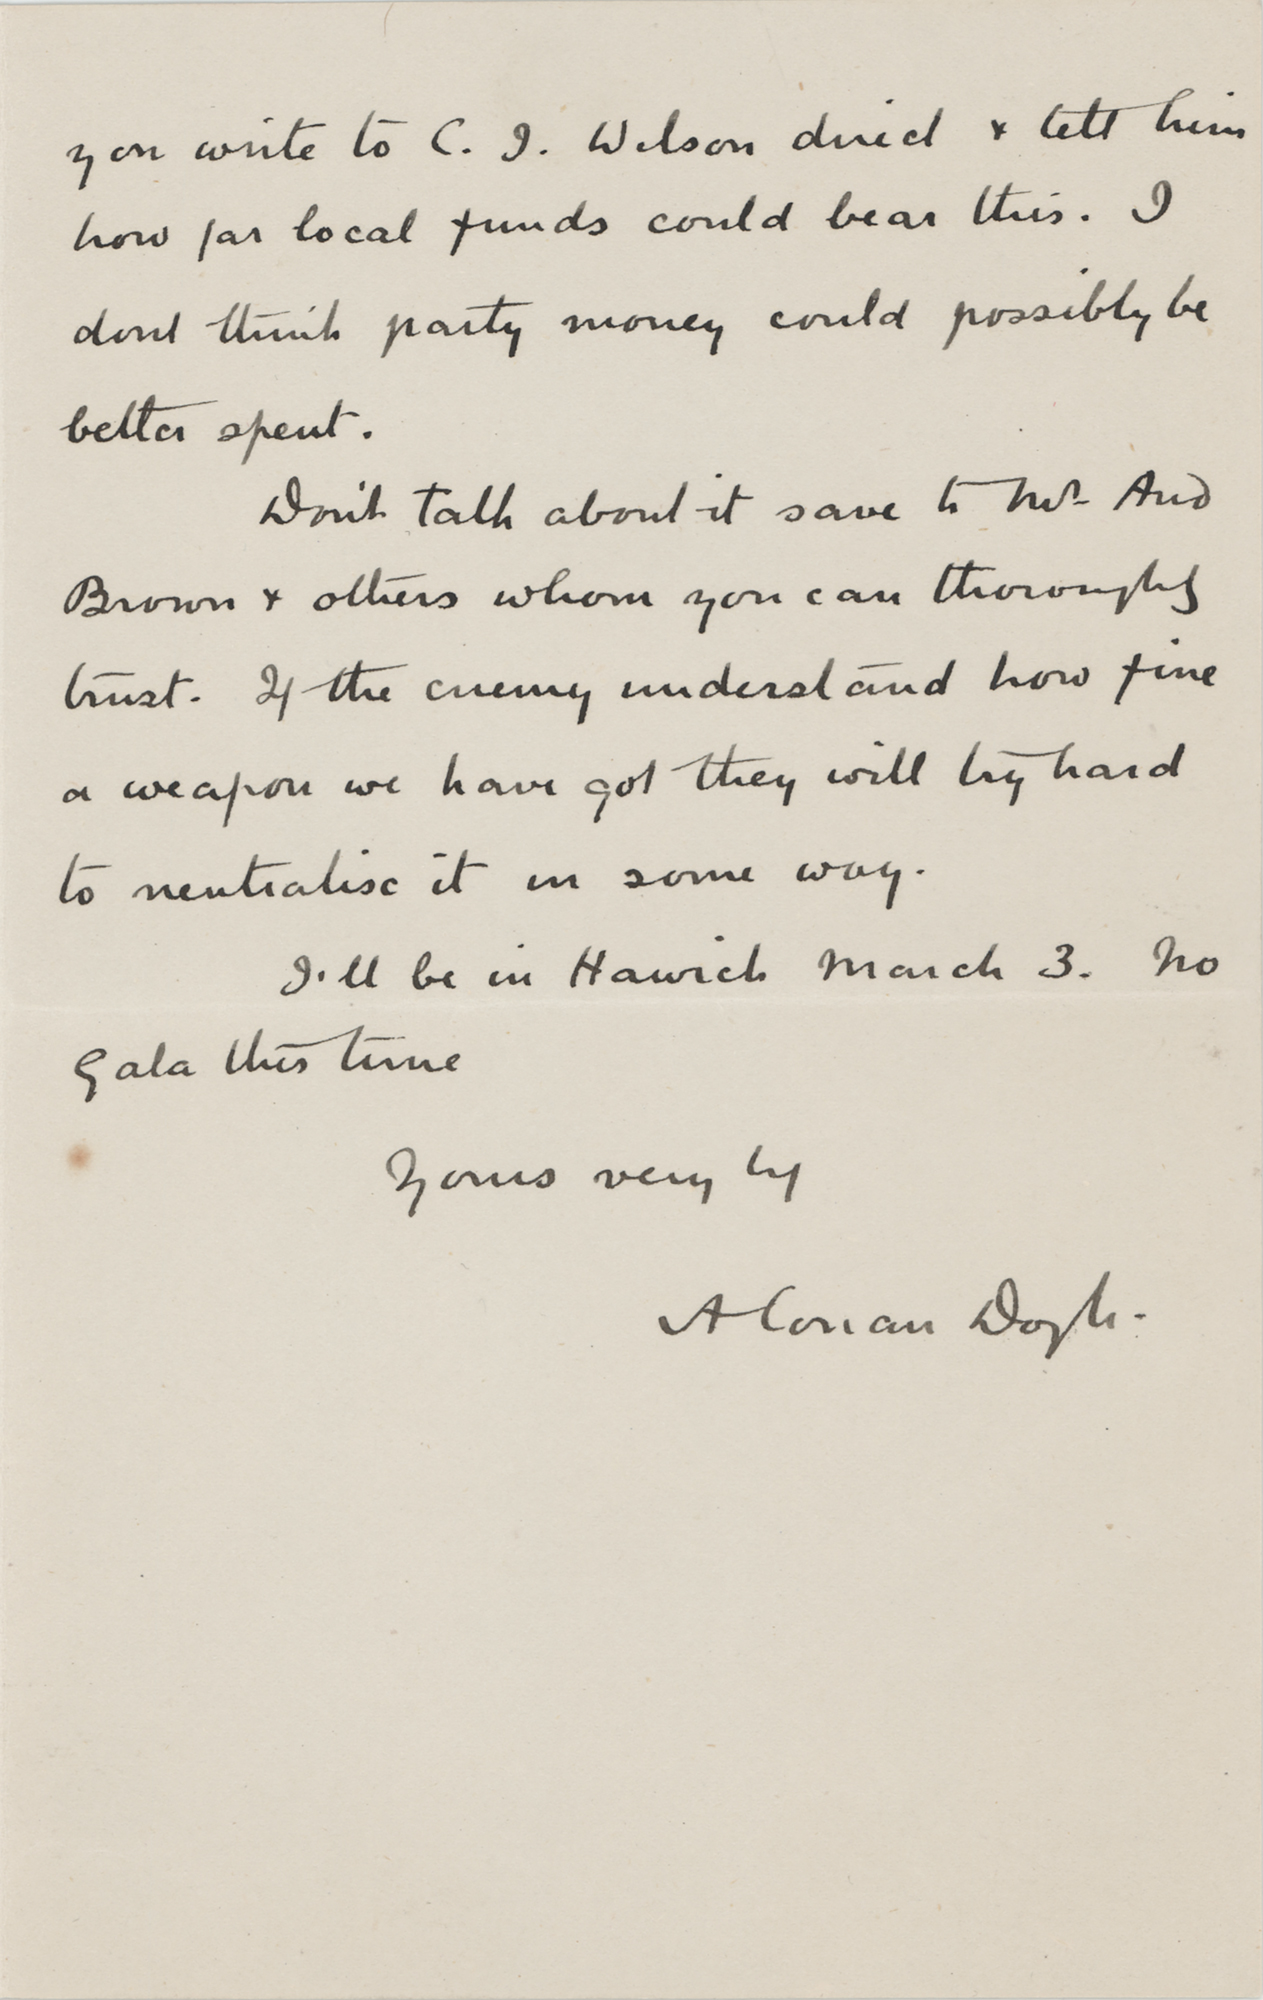 you write to C. I. Wilson direct & tell him
how far local funds could bear this. I
dont think party money could possibly be
better spent.
Don't talk about it save to Mr. And
Brown & others whom you can thoroughly
trust. If the enemy understand how fine
a weapon we have got they will try hard
to neutralise it in some way.
I'll be in Hawick March 3. No
Gala this time
Yours very ty
A Conan Doyle.